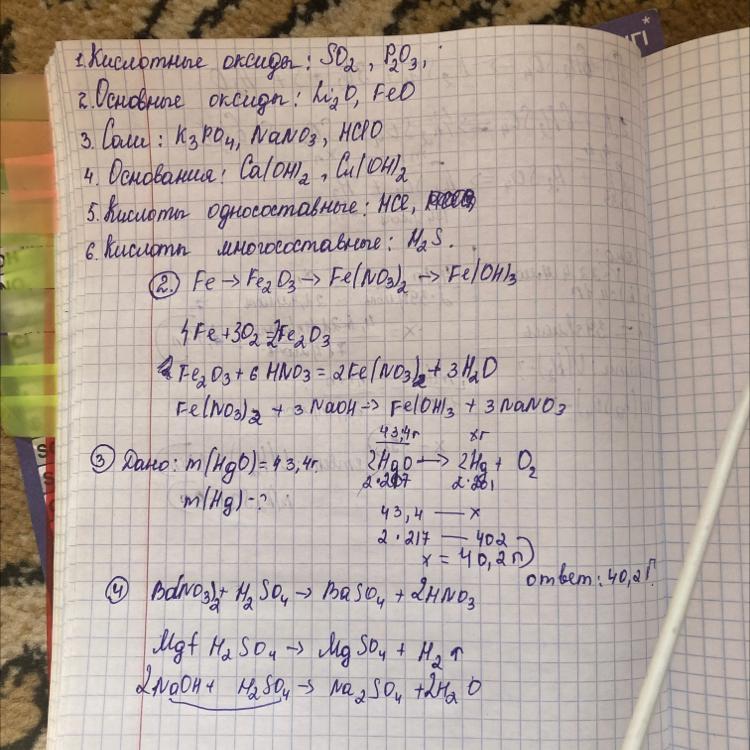 1. Кислотные оксиды: SO₂, P₂O₃,
2. Основные оксиды: Li₂O, FeO
3. Соли: K₃PO₄, NaNO₃, HClO
4. Основания: Ca(OH)₂, Cu(OH)₂
5. Кислоты односоставные: HCl,
6. Кислоты многосоставные: H₂S.
2. Fe → Fe₂O₃ → Fe(NO₃)₂ → Fe(OH)₃
4Fe + 3O₂ = 2Fe₂O₃
Fe₂O₃ + 6HNO₃ = 2Fe(NO₃)₂ + 3H₂O
Fe(NO₃)₂ + 3NaOH → Fe(OH)₃ + 3NaNO₃
43,4г хг
3 Дано: m(HgO) = 43,4г. 2HgO → 2Hg + O₂
2·217 2·201
m(Hg) - ?
43,4 — x
2·217 — 402
x = 40,2г
ответ: 40,2г.
4 Ba(NO₃)₂ + H₂SO₄ → BaSO₄ + 2HNO₃
Mg + H₂SO₄ → MgSO₄ + H₂↑
2NaOH + H₂SO₄ → Na₂SO₄ + 2H₂O